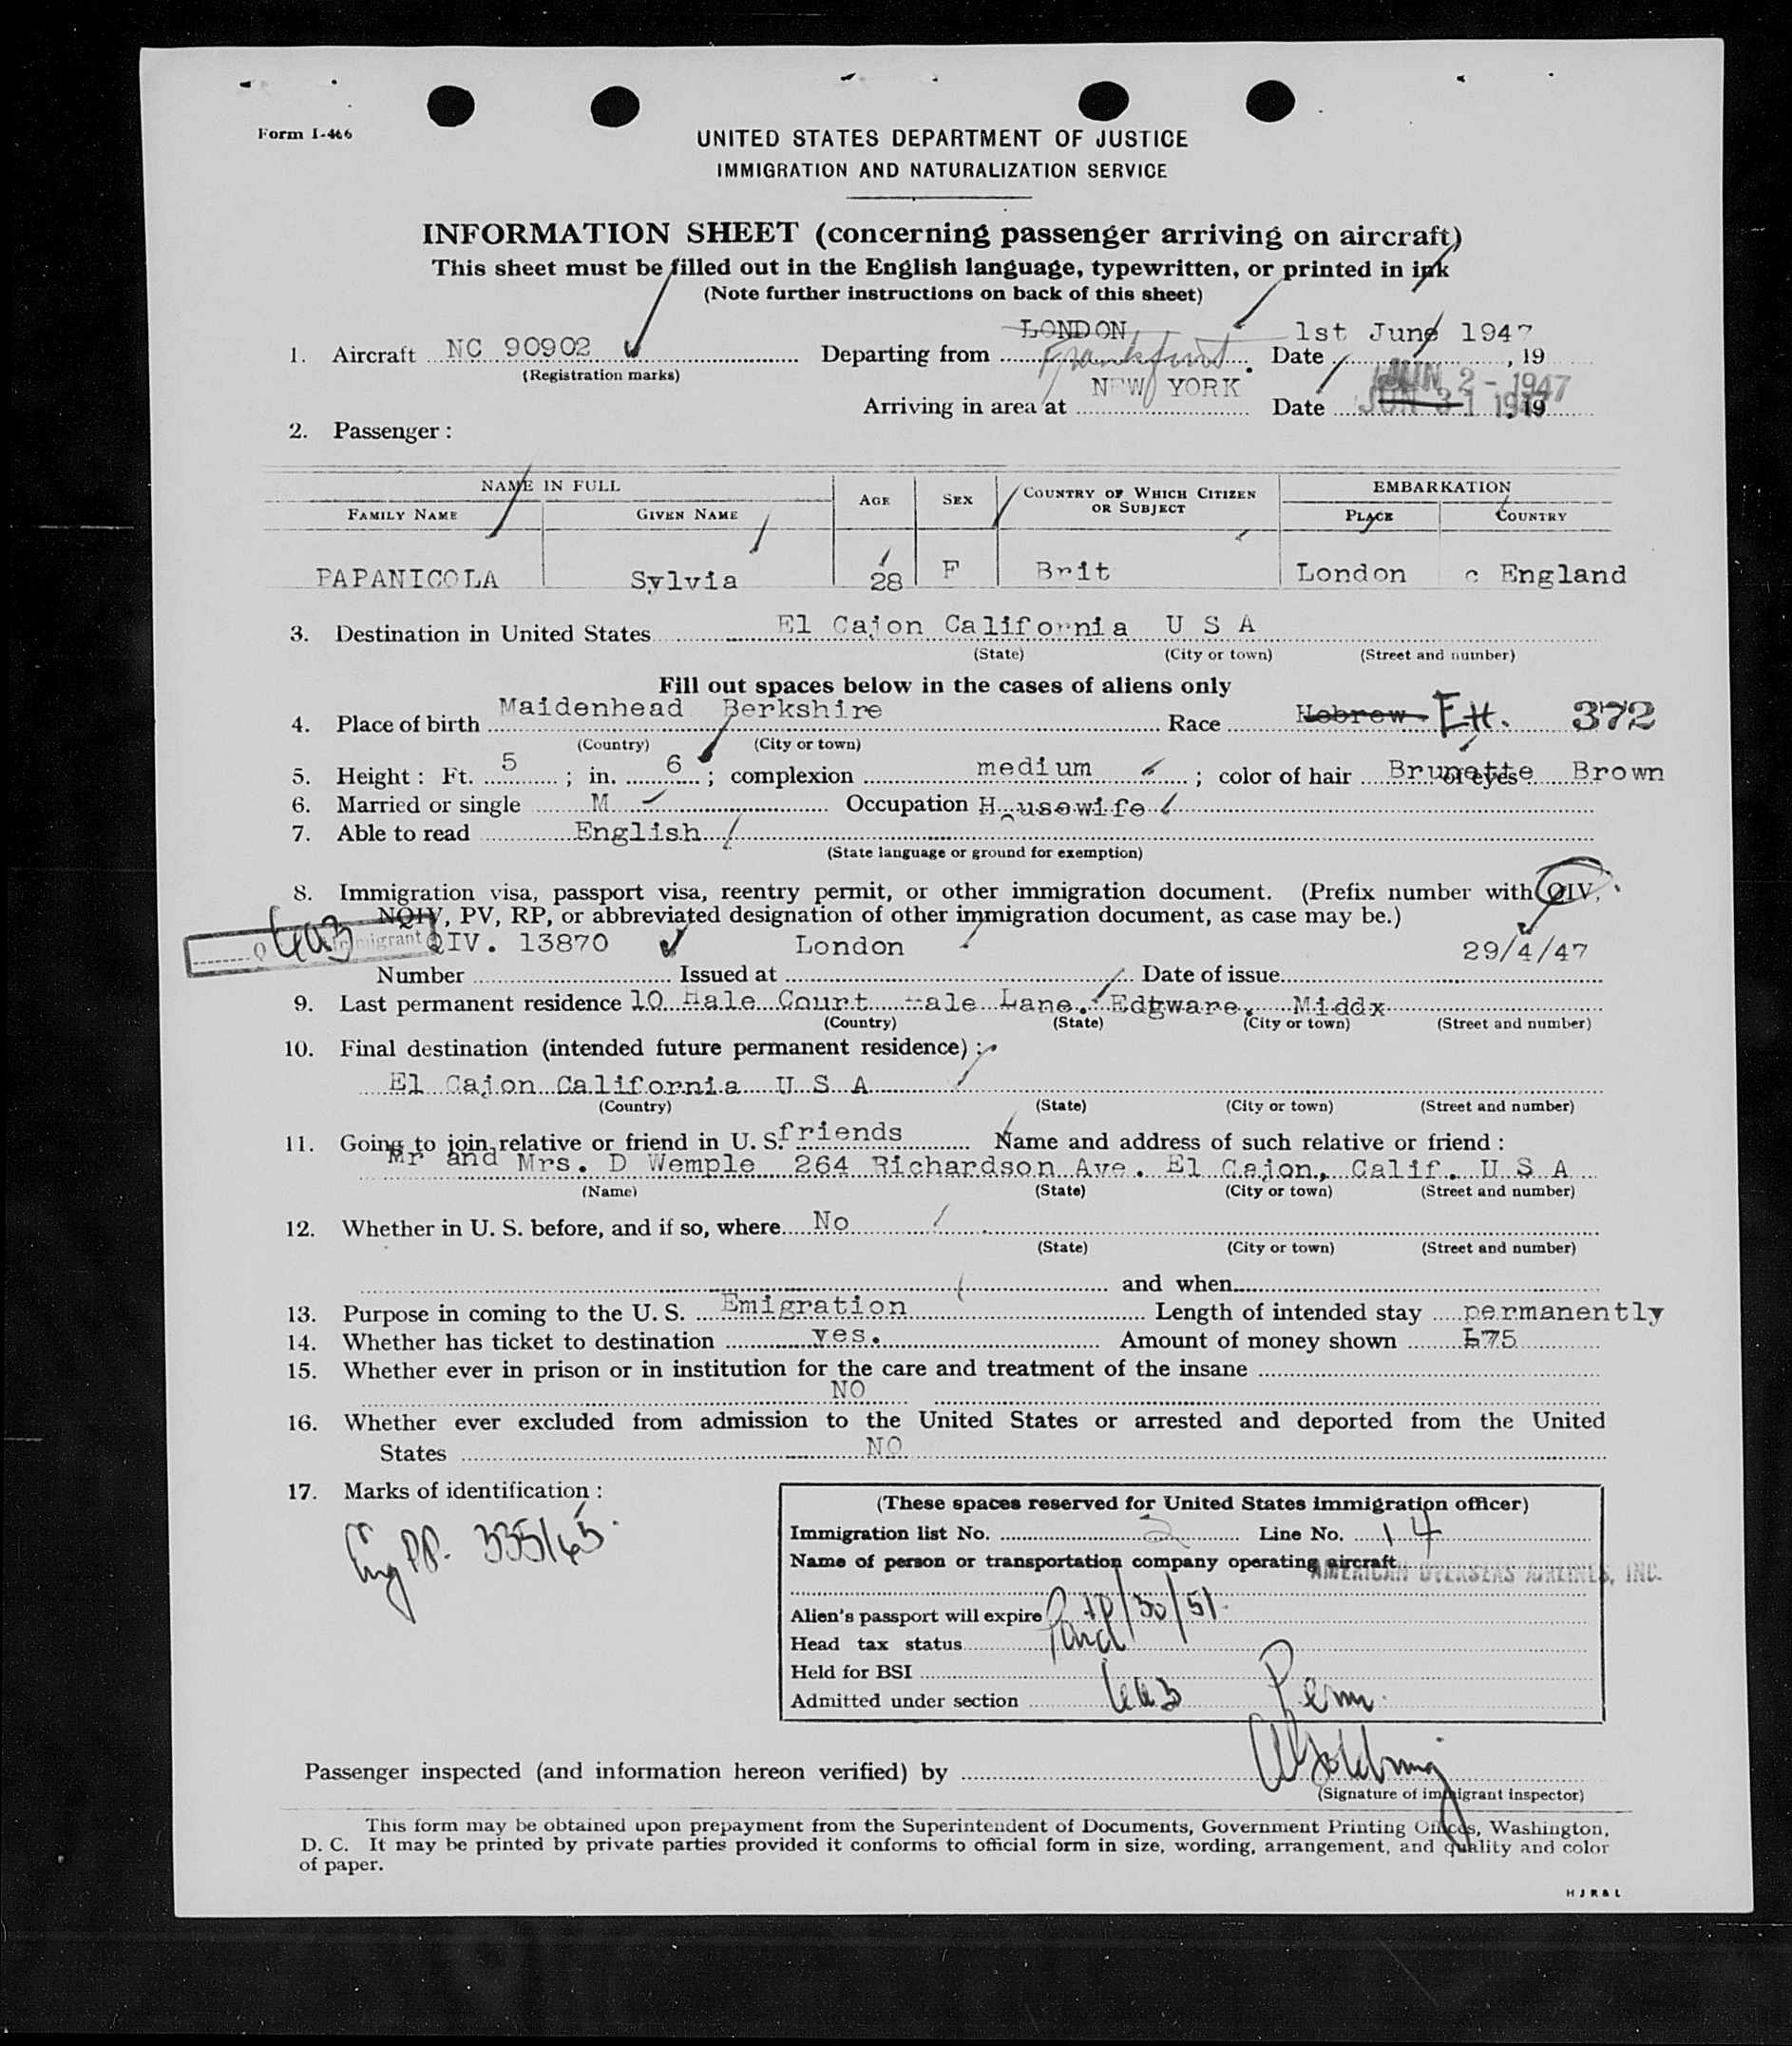 Form I-466
UNITED STATES DEPARTMENT OF JUSTICE
IMMIGRATION AND NATURALIZATION SERVICE
INFORMATION SHEET (concerning passenger arriving on aircraft)
This sheet must be filled out in the English language, typewritten, or printed in ink
(Note further instructions on back of this sheet)
1. Aircraft NC 90902 Departing from LONDON, Frankfurt. Date 1st June 1947, 19
(Registration marks)
Arriving in area at NEW YORK Date JUN 2 - 1947, 19
2. Passenger:
NAME IN FULL AGE SEX COUNTRY OF WHICH CITIZEN OR SUBJECT EMBARKATION
FAMILY NAME GIVEN NAME PLACE COUNTRY
PAPANICOLA Sylvia 28 F Brit London c England
3. Destination in United States El Cajon California U S A
(State) (City or town) (Street and number)
Fill out spaces below in the cases of aliens only
4. Place of birth Maidenhead Berkshire Race Hebrew. 372
(Country) (City or town)
5. Height: Ft. 5; in. 6; complexion medium; color of hair Brunette of eyes Brown
6. Married or single M Occupation Housewife
7. Able to read English
(State language or ground for exemption)
8. Immigration visa, passport visa, reentry permit, or other immigration document. (Prefix number with QIV,
NQIV, PV, RP, or abbreviated designation of other immigration document, as case may be.)
QIV. 13870 London 29/4/47
Number Issued at Date of issue
9. Last permanent residence 10 Hale Court Hale Lane. Edgware, Middx
(Country) (State) (City or town) (Street and number)
10. Final destination (intended future permanent residence):
El Cajon California U S A
(Country) (State) (City or town) (Street and number)
11. Going to join relative or friend in U. S. friends Name and address of such relative or friend:
Mr and Mrs. D Wemple 264 Richardson Ave. El Cajon, Calif. U S A
(Name) (State) (City or town) (Street and number)
12. Whether in U. S. before, and if so, where No
(State) (City or town) (Street and number)
and when
13. Purpose in coming to the U. S. Emigration Length of intended stay permanently
14. Whether has ticket to destination yes. Amount of money shown £75
15. Whether ever in prison or in institution for the care and treatment of the insane
NO
16. Whether ever excluded from admission to the United States or arrested and deported from the United
States NO
17. Marks of identification:
(These spaces reserved for United States immigration officer)
Immigration list No. 2 Line No. 14
Name of person or transportation company operating aircraft
AMERICAN OVERSEAS AIRLINES, INC.
Alien's passport will expire
Head tax status Paid
Held for BSI
Admitted under section 6a3 Perm.
Passenger inspected (and information hereon verified) by
(Signature of immigrant inspector)
This form may be obtained upon prepayment from the Superintendent of Documents, Government Printing Offices, Washington,
D. C. It may be printed by private parties provided it conforms to official form in size, wording, arrangement, and quality and color
of paper.
H J R & L